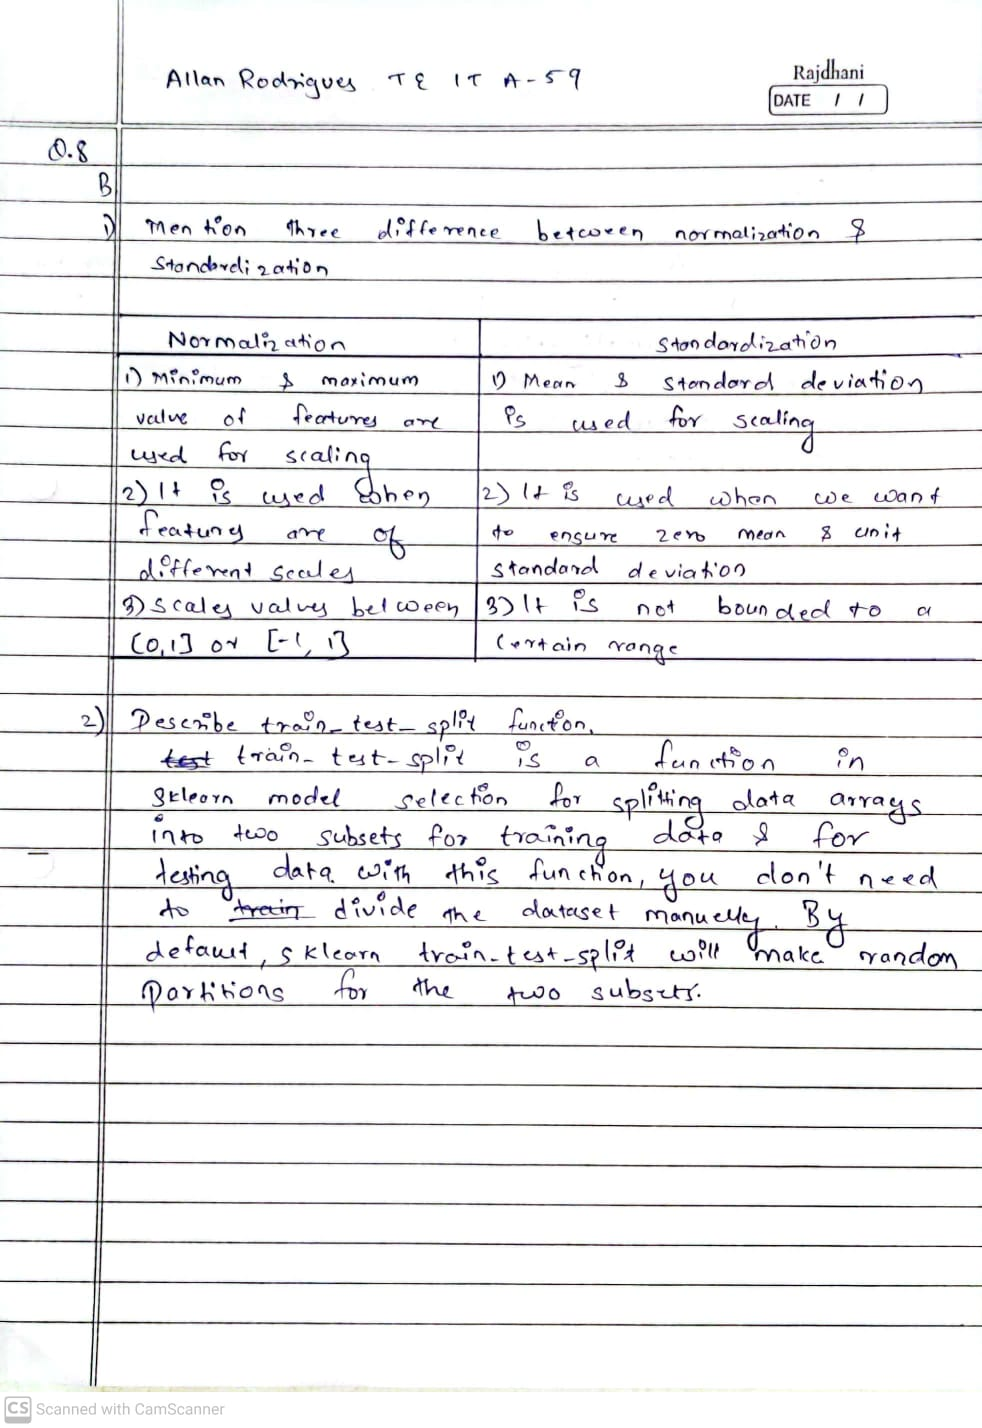 Allan Rodrigues TE IT A-59
Rajdhani
DATE / /
Q.8
B
1) Mention three difference between normalization &
Standardization
Normalization
Standardization
1) Minimum & maximum
value of features are
used for scaling
1) Mean & standard deviation
is used for scaling
2) It is used when
features are of
different scales
2) It is used when we want
to ensure zero mean & unit
standard deviation
3) Scales values between
[0,1] or [-1, 1]
3) It is not bounded to a
certain range
2) Describe train_test_split function.
test train-test-split is a function in
Sklearn model selection for splitting data arrays
into two subsets for training data & for
testing data. with this function, you don't need
to train divide the dataset manuelly. By
default, sklearn train-test-split will make random
Partitions for the two subsets.
CS Scanned with CamScanner